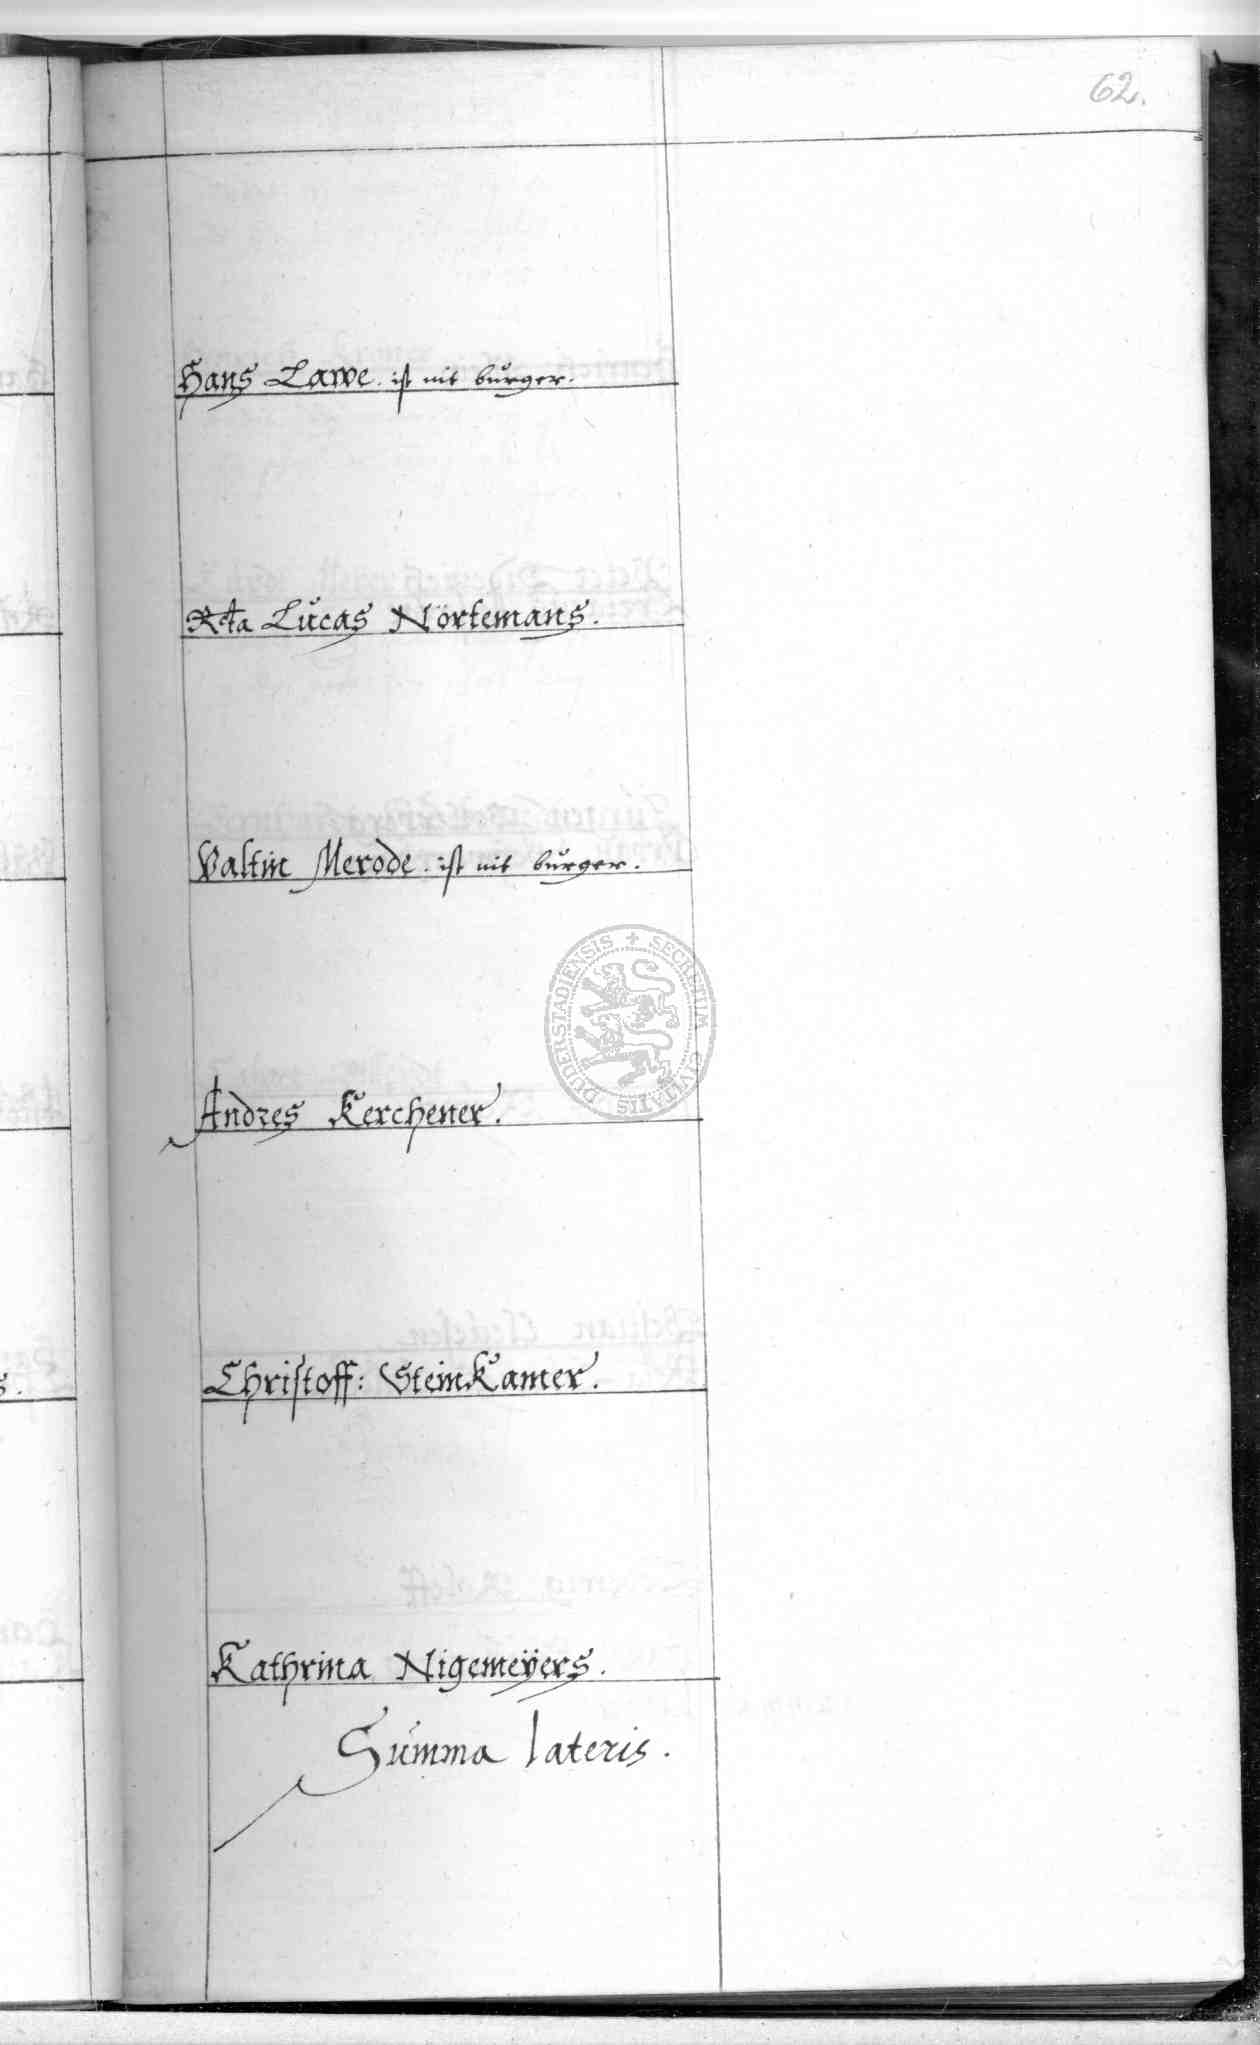 62.
Hans Lawe. ist nit bürger.
Rta Lucas Nörtemans.
Valtin Merode. ist nit bürger.
DUDERSTADIENSIS + SECRETUM CIVITATIS
Andres Kerchener.
Christoff: SteinKamer.
Kathrina Nigemeÿers.
Summa lateris.